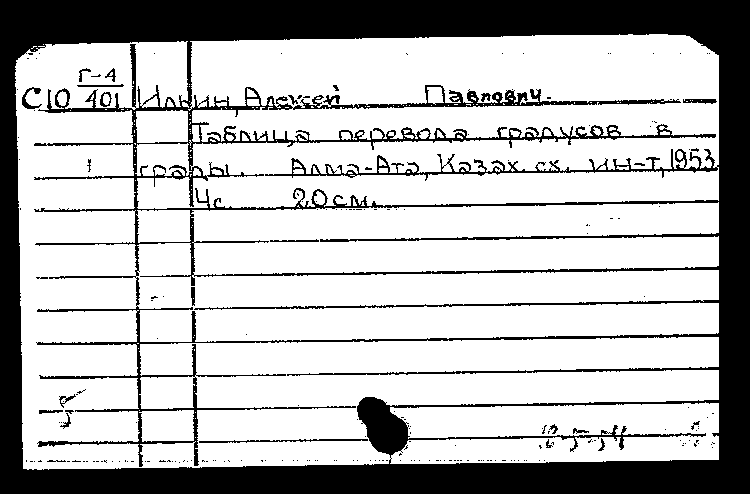 Г-4
С10 401 Ильин, Алексей Павлович.
Таблица перевода градусов в
1 грады. Алма-Ата, Казах. сх. ин-т, 1953
4с. 20см.
5